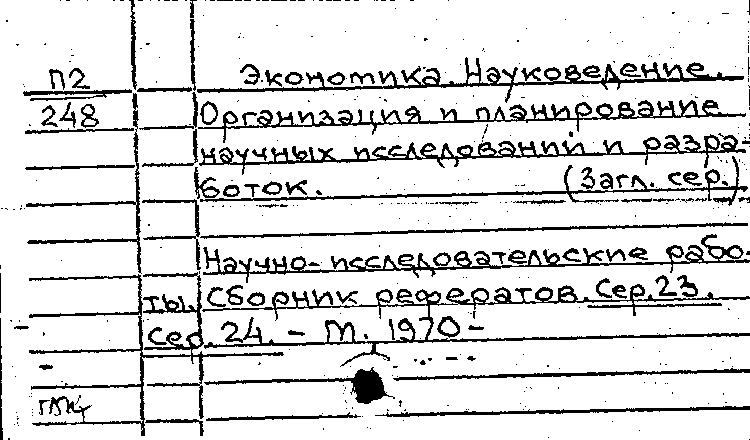 П2 Экономика. Науковедение.
248 Организация и планирование
научных исследований и разра-
боток. (Загл. сер.)
Научно-исследовательские рабо-
ты. Сборник рефератов. Сер. 23.
Сер. 24. – М. 1970-